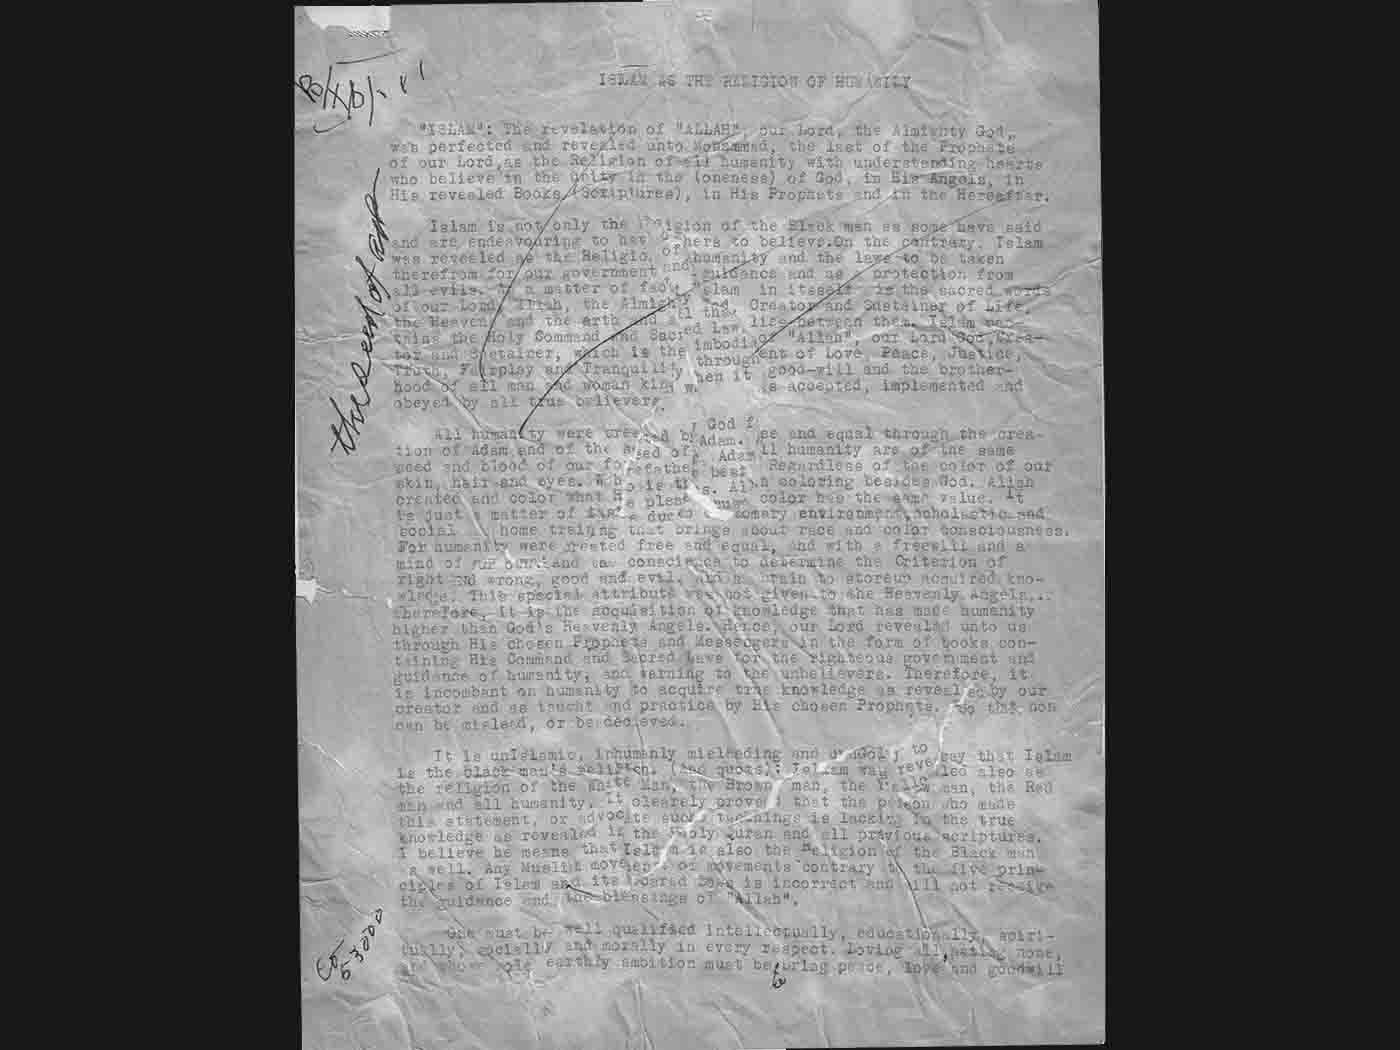 ISLAM AS THE RELIGION OF HUMANITY
"ISLAM": The revelation of "ALLAH", our Lord, the Almighty God,
was perfected and revealed unto Mohammad, the last of the Prophets
of our Lord,as the Religion of all humanity with understanding hearts
who believe in the Unity in the (oneness) of God, in His Angels, in
His revealed Books (Scriptures), in His Prophets and in the Hereafter.
Islam is not only the Religion of the Black man as some have said
and are endeavouring to have others to believe.On the contrary. Islam
was revealed as the Religion of humanity and the laws to be taken
therefrom for our government and guidance and as protection from
all evils. As a matter of fact, Islam in itself is the sacred words
of our Lord Allah, the Almighty God Creator and Sustainer of Life,
the Heaven and the arth and all that lies between them. Islam con-
tains the Holy Command and Sacred Law imbodi of "Allah", our Lord God,Crea-
tor and Sustainer, which is the through ent of Love, Peace, Justice,
Truth, Fairplay and Tranquility good-will and the brother-
hood of all man and woman kind when it is accepted, implemented and
obeyed by all true believers.
All humanity were created by God free and equal through the crea-
tion of Adam and of the seed of Adam. All humanity are of the same
seed and blood of our forefather Adam Regardless of the color of our
skin, hair and eyes. Who is best in coloring besides God. Allah
created and color what He pleases. All human color has the same value. It
is just a matter of customary environment,scholastic and
social home training that brings about race and color consciousness.
For humanity were created free and equal, and with a freewill and a
mind of and conscience to determine the Criterion of
right and wrong, good and evil. brain to storeup acquired kno-
wledge. This special attribute was not given to the Heavenly Angels...
therefore, it is the acquisition of knowledge that has made humanity
higher than God's Heavenly Angels. Hence, our Lord revealed unto us
through His chosen Prophets and Messecgers in the form of books con-
taining His Command and Sacred Laws for the righteous government and
guidance of humanity, and warning to the unbelievers. Therefore, it
is incombant on humanity to acquire true knowledge as revealed by our
creator and as taught and practice by His chosen Prophets. So that non
can be mislead, or be decieved.
It is unIslamic, inhumanly misleading and unGodly to say that Islam
is the black man's religion. (end quote): Islam was revealed also as
the religion of the White Man, the Brown man, the Yellow man, the Red
man and all humanity. It clearely proved that the person who made
this statement, or advocate such teachings is lacking in the true
knowledge as revealed in the Holy Quran and all previous scriptures.
I believe he means that Islam is also the Religion of the Black man
as well. Any Muslim movement or movements contrary to the five prin-
ciples of Islam and its Sacred Laws is incorrect and will not receive
the guidance and the blessings of "Allah".
One must be well qualified intellectually, educationally, spiri-
tually, socially and morally in every respect. Loving all,hating none,
and whose sole earthly ambition must be to bring peace, love and goodwill
the seed of